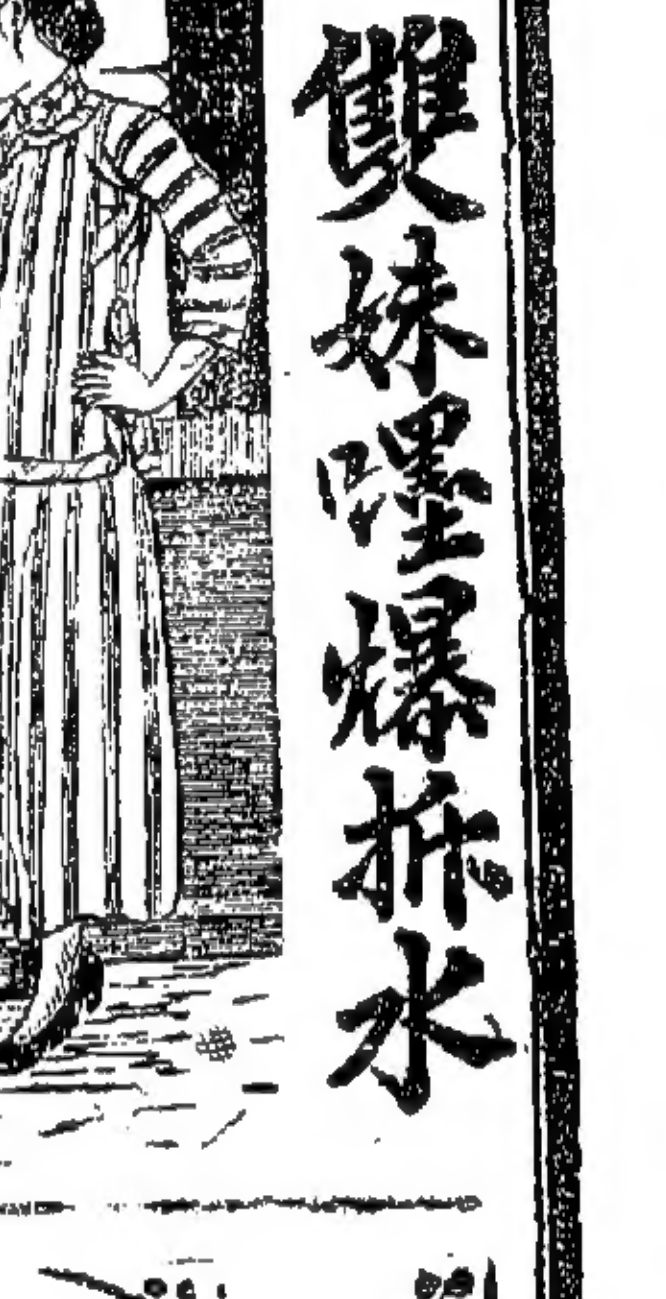 雙妹嚜爆拆水